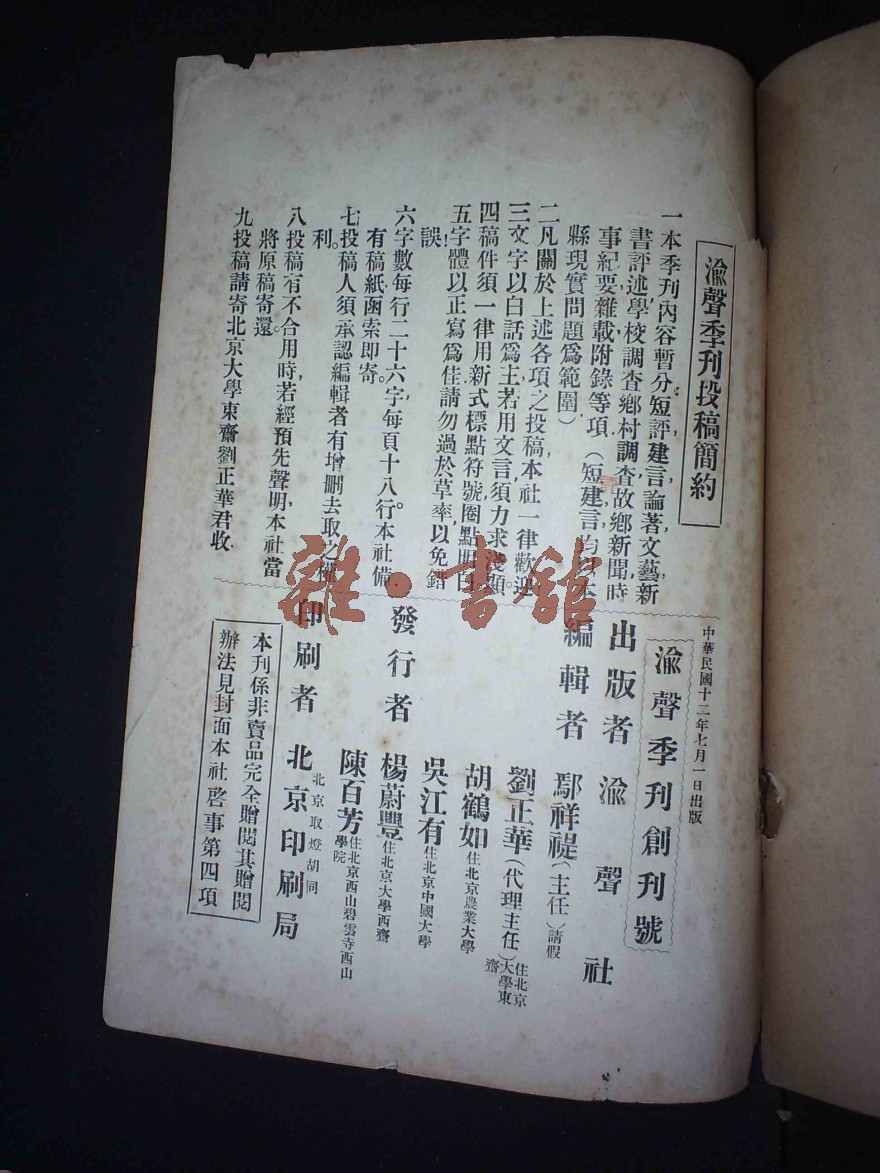 渝聲季刊投稿簡約
一本季刊內容暫分短評,建言,論著,文藝,新
書評述,學校調查,鄉村調查,故鄉新聞,時
事紀要,雜載,附錄等項.(短 建言,均 本
縣現實問題爲範圍)
二凡關於上述各項之投稿,本社一律歡迎
三文字以白話爲主,若用文言,須力求淺顯。
四稿件須一律用新式標點符號,圈點明白
五字體以正寫爲佳,請勿過於草率,以免錯
誤!
六字數每行二十六字,每頁十八行,本社備
有稿紙,函索即寄。
七投稿人須承認編輯者有增删去取之權
利。
八投稿有不合用時,若經預先聲明,本社當
將原稿寄還。
九投稿請寄北京大學東齋劉正華君收.
中華民國十二年七月一日出版
渝聲季刊創刊號
出版者 渝聲社
編輯者 鄢祥禔(主任)請假
劉正華(代理主任)住北京大學東齋
胡鶴如住北京農業大學
吳江有住北京中國大學
發行者 楊蔚豐住北京大學西齋
陳百芳住北京西山碧雲寺西山學院
北京取燈胡同
印刷者 北京印刷局
本刊係非賣品完全贈閱其贈閱
辦法見封面本社啓事第四項
雜·書館